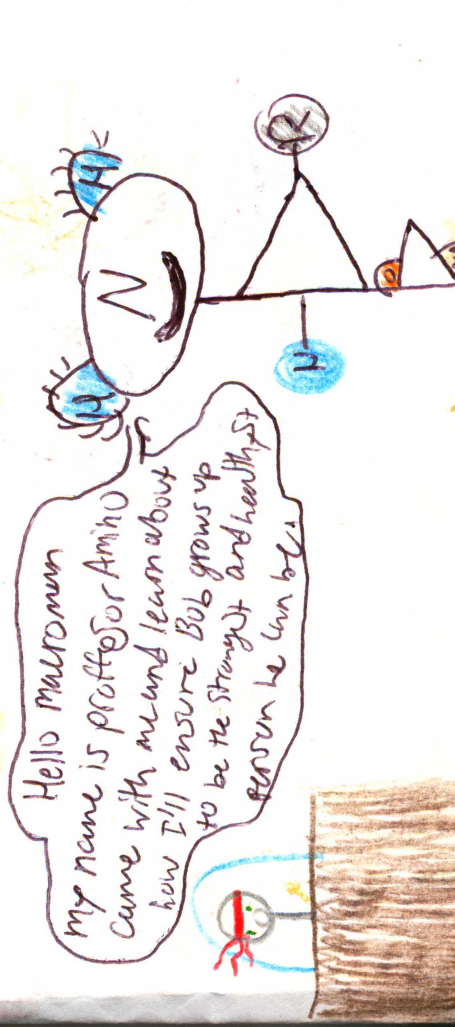 Hello macroman
my name is proffesor Amino
come with me and learn about
how I'll ensure Bob grows up
to be the strongest and healthyst
person he can be.
H
N
H
R
H
O